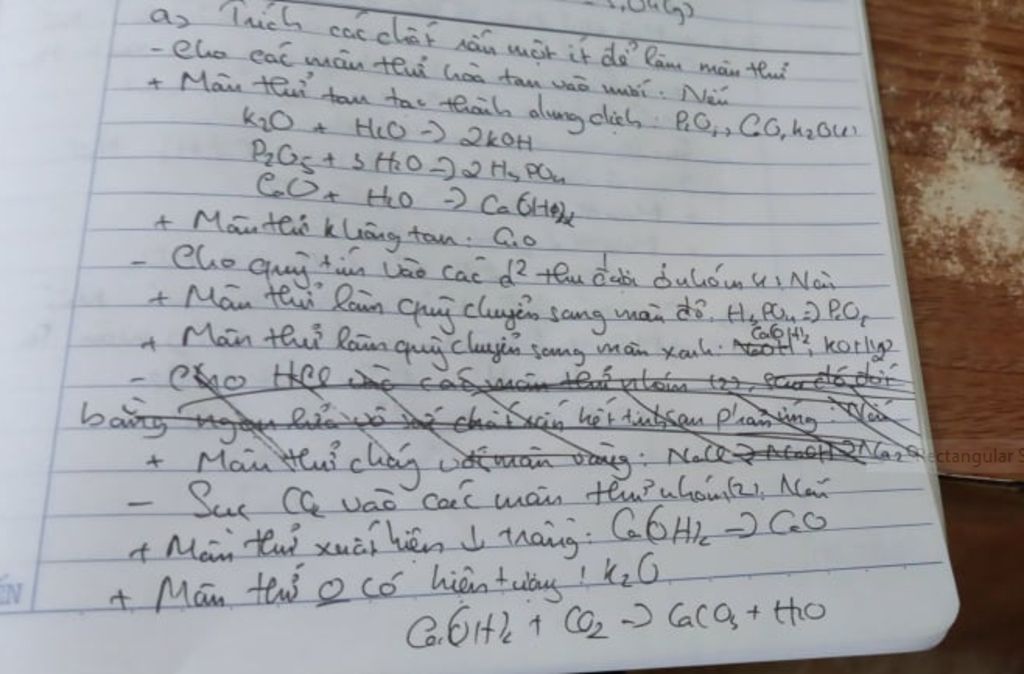 a, Trích các chất rắn một ít để làm mẫu thử
- Cho các mẫu thử hoà tan vào nước. Nếu
+ Mẫu thử tan tạo thành dung dịch: P2O5, CaO, K2O (1)
K2O + H2O -> 2KOH
P2O5 + 3H2O -> 2H3PO4
CaO + H2O -> Ca(OH)2
+ Mẫu thử không tan:
- Cho quỳ tím vào các d2 thu được ở nhóm 1, Nếu
+ Mẫu thử làm quỳ chuyển sang màu đỏ: H3PO4 => P2O5
+ Mẫu thử làm quỳ chuyển sang màu xanh: Ca(OH)2, KOH (2)
- Cho HCl các mẫu thử nhóm (2), sau đó đốt
bằng ngọn lửa vô sắc chất rắn kết tinh sau phản ứng. Nếu
+ Mẫu thử cháy với màu vàng: NaCl => NaOH => Na2O
Rectangular S
- Sục CO2 vào các mẫu thử nhóm (2), Nếu
+ Mẫu thử xuất hiện ↓ trắng: Ca(OH)2 -> CaO
+ Mẫu thử 0 có hiện tượng: K2O
ẾN
Ca(OH)2 + CO2 -> CaCO3 + H2O